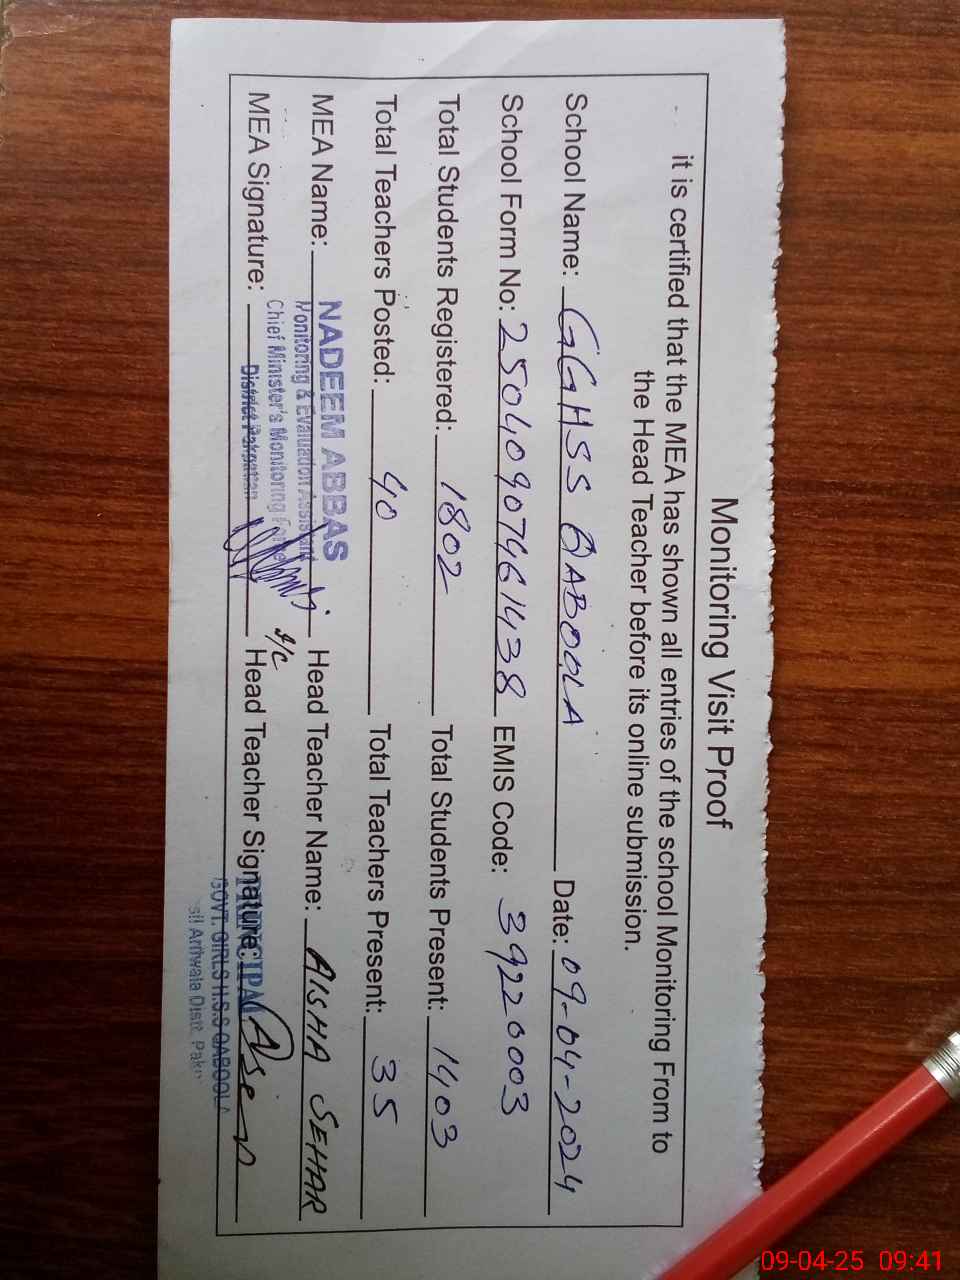 Monitoring Visit Proof
it is certified that the MEA has shown all entries of the school Monitoring From to
the Head Teacher before its online submission.
School Name: GGHSS QABOOLA Date: 09-04-2024
School Form No: 25040907461438 EMIS Code: 39220003
Total Students Registered: 1802 Total Students Present: 1403
Total Teachers Posted: 40 Total Teachers Present: 35
MEA Name: NADEEM ABBAS Head Teacher Name: AISHA SEHAR
Monitoring & Evaluation Assistant
Chief Minister's Monitoring Force
I/C
MEA Signature: District Pakpattan Head Teacher Signature:
PRINCIPAL
GOVT. GIRLS H.S.S QABOOLA
sil Arifwala Distt. Pak
09-04-25 09:41